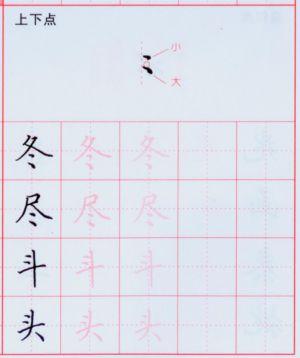 上下点
小
大
冬 冬 冬
尽 尽 尽
斗 斗 斗
头 头 头